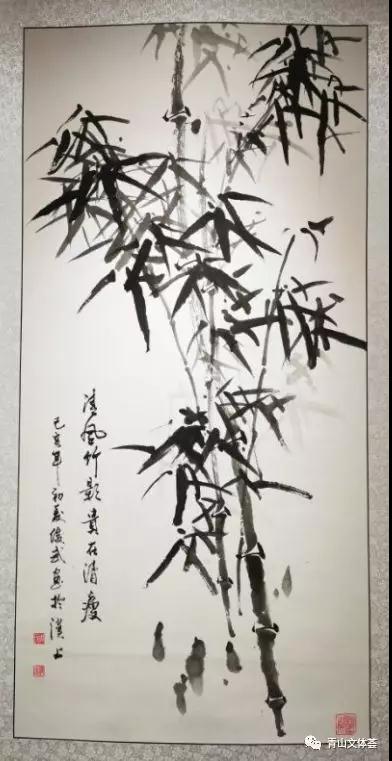 清风竹影貴在清瘦
己亥年初夏俊武画於漢上
青山文体荟